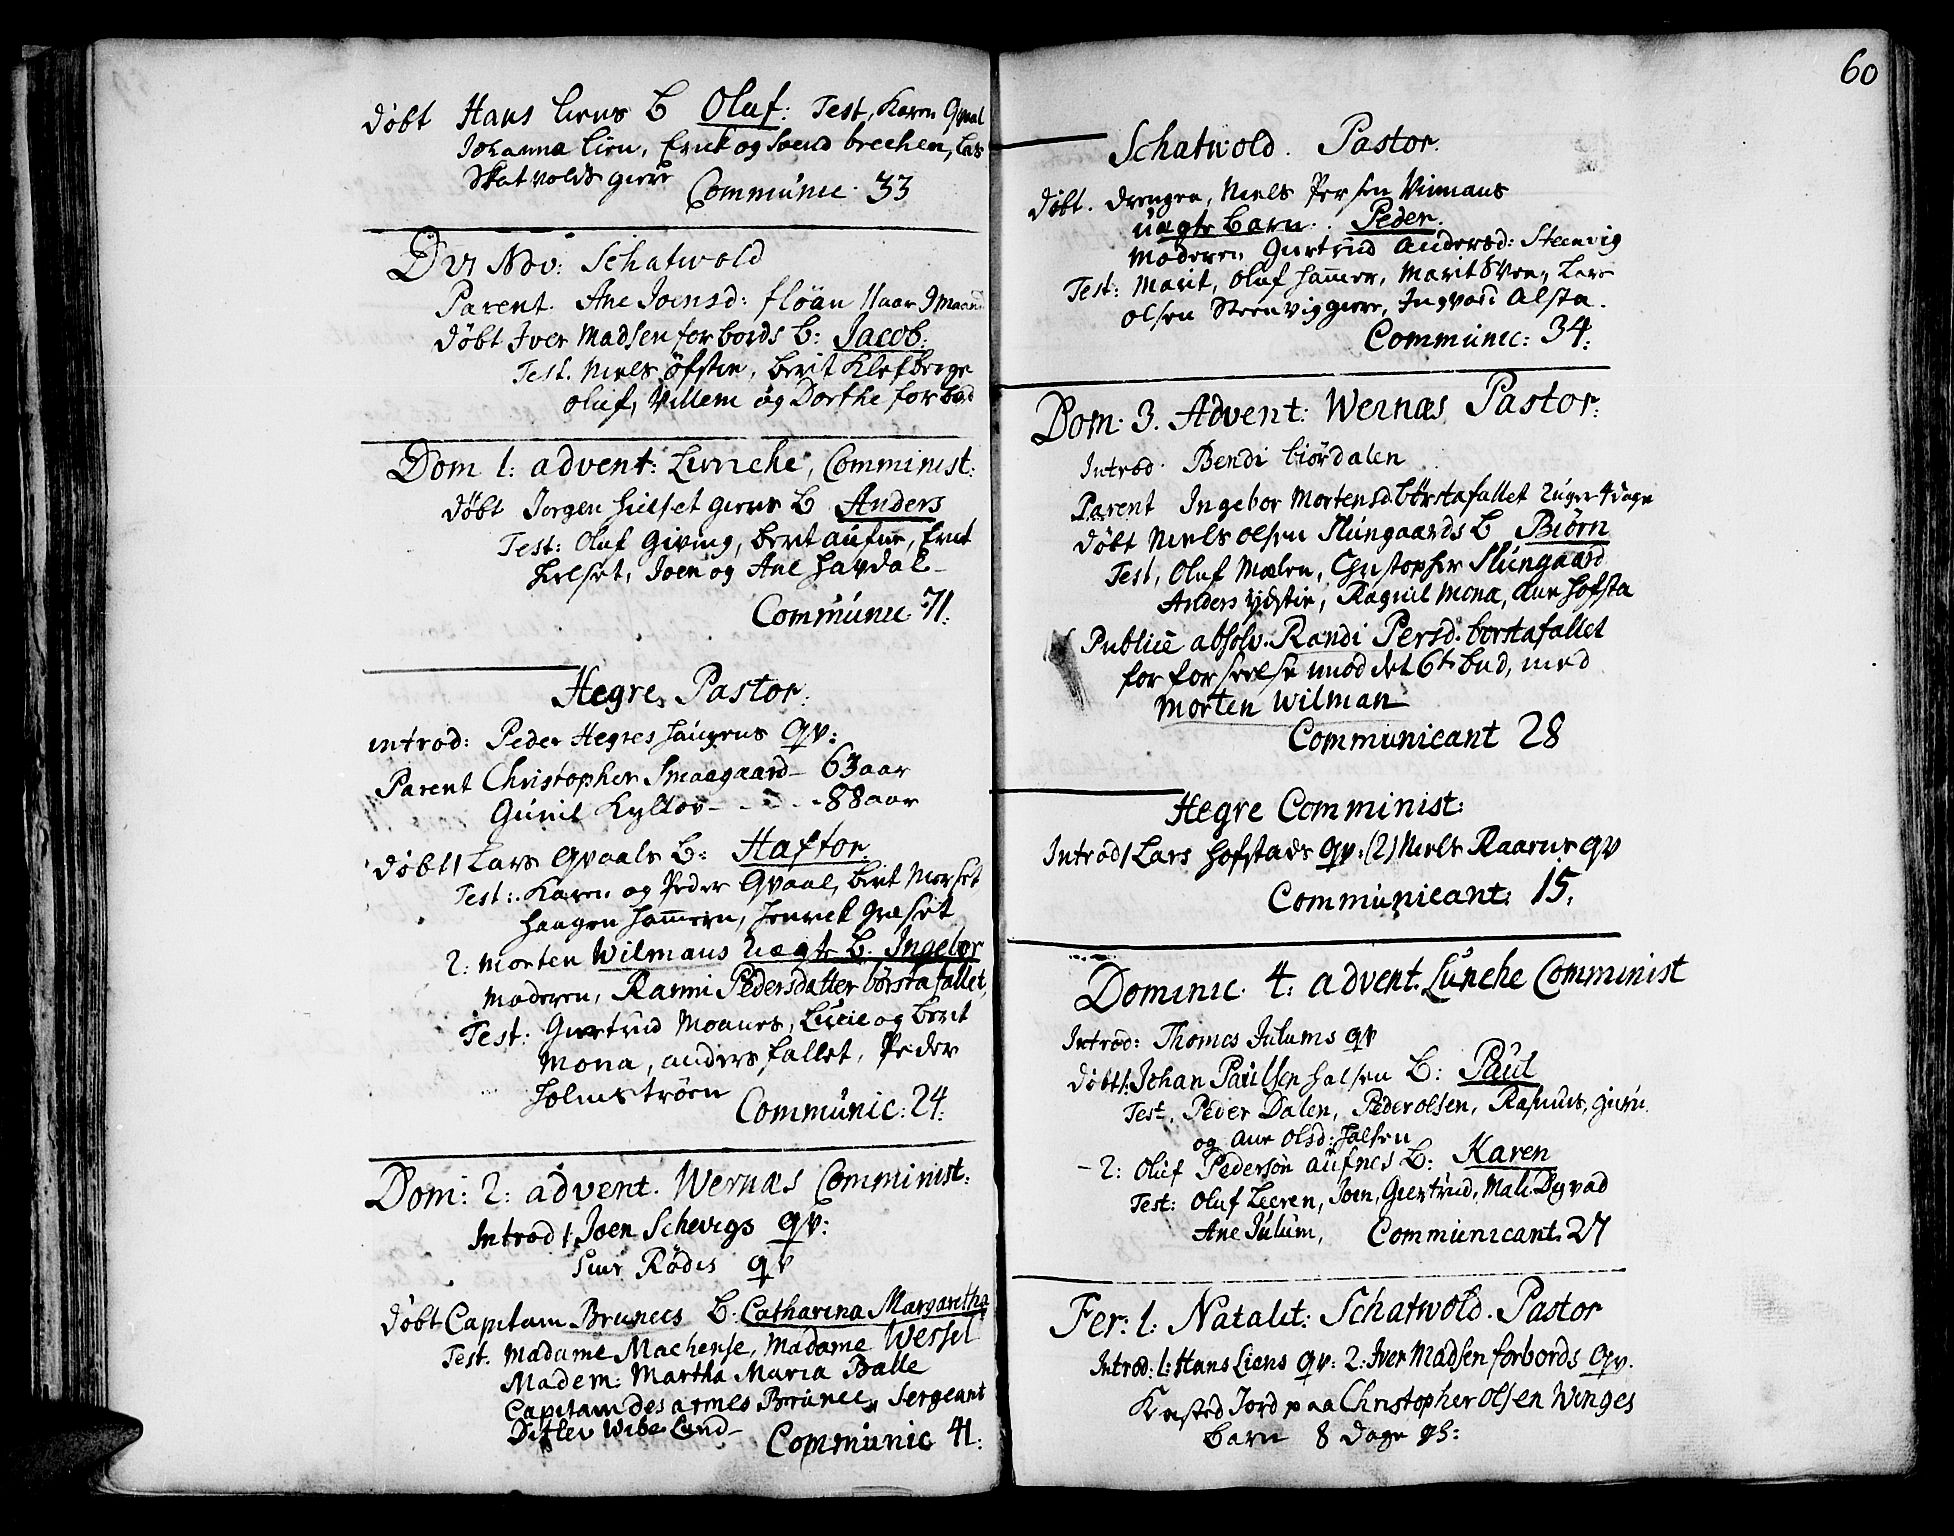 døbt Hans Liens B Oluf: Test, Karen Qvaal
Johanna Lien, Erick og Svend brechen, Lars
Skatvolds giere
Communic. 33
D VI Nov: Schatwold
Parent. Ane Joensd: fløan 11 aar 9 maan
døbt Iver Madsen forbords B: Jacob:
Test. Niels Øfstie, berit Klefberge
oluf, Villem og Dorthe forbod
Dom 1: advent: Lunche, Comminist:
døbt Jorgen hielset giere B Anders
Test: Oluf Giving, berit aufne, Erick
hielset, Joen og Ane havdal
Communic 71.
Hegre, Pastor.
introd: Peder Hegres haugens qv:
Parent Christopher Smaagaard - 63 aar
Gunil Kyllov - - - 88 aar
døbt 1 Lars Qvaals B: Haftor
Test: Karen og Peder Qvaal, berit Morset
haagen hammern, henrick græset
2: morten Wilmans uægte B. Ingebor
moderen, Ranni Pedersdatter børstafallet,
Test: Giertrud Moanes, Lucie og berit
Mona, anders fallet, Peder
holmstrøen
Communic: 24:
Dom: 2: advent. Wernæs Comminist:
Introd 1 Joen Schevigs qv:
Siur Rødes qv
døbt Capitain Brunees B: Catharina Margaretha
Test. Madame Machense, Madame Wessel
Madem: Martha Maria Balle
Capitain des armes Brunee, Sergeant
Ditlev Wibe Lund -
Communic 41:
60
Schatwold. Pastor.
døbt. drengen, Niels Persen Vinnans
uægte barn. Peder.
Moderen Giertrud Andersd: Steenvig
Test: Marit, Oluf hammer, Marit Sven, Lars
olsen Steenvig giere, Ingvold Alsta.
Communic: 34:
Dom: 3. Advent: Wernæs Pastor:
Introd. Bendi liørdalen
Parent Ingebor Mortensd. børstafallet 2 uger 4 dage
døbt Niels olsen Slungaards B Biørn
Test, Oluf Mælen, Christopher Slungaard
Anders ydstie, Ragnil Mona, ane hofsta
Publicè absolv. Randi Persd. borstafallet
for forseelse imod det 6te bud, med
Morten Wilman
Communicant 28
Hegre Comminist:
Introd 1 Lars hofstads qv: (2) Niels Raarus qv
Communicant: 15.
Dominic. 4: advent. Lunche Comminist
Introd: Thomes Julums qv
døbt 1. Johan Paulsen halsen B: Paul
Test. Peder Dalen, Peder olsen, Rasmus, Guru
og ane olsd: halsen
- 2: Oluf Pedersøn aufnes B: Karen
Test: Oluf Leeren, Joen, Giertrud, Mali Dyvad
Ane Julum, Communicant. 27
Fer: 1: Natalit: Schatwold. Pastor
Introd: 1: Hans Liens qv: 2: Iver Madsen forbords qv.
Kasted Jord paa Christopher olsen Winges
barn 8 dage